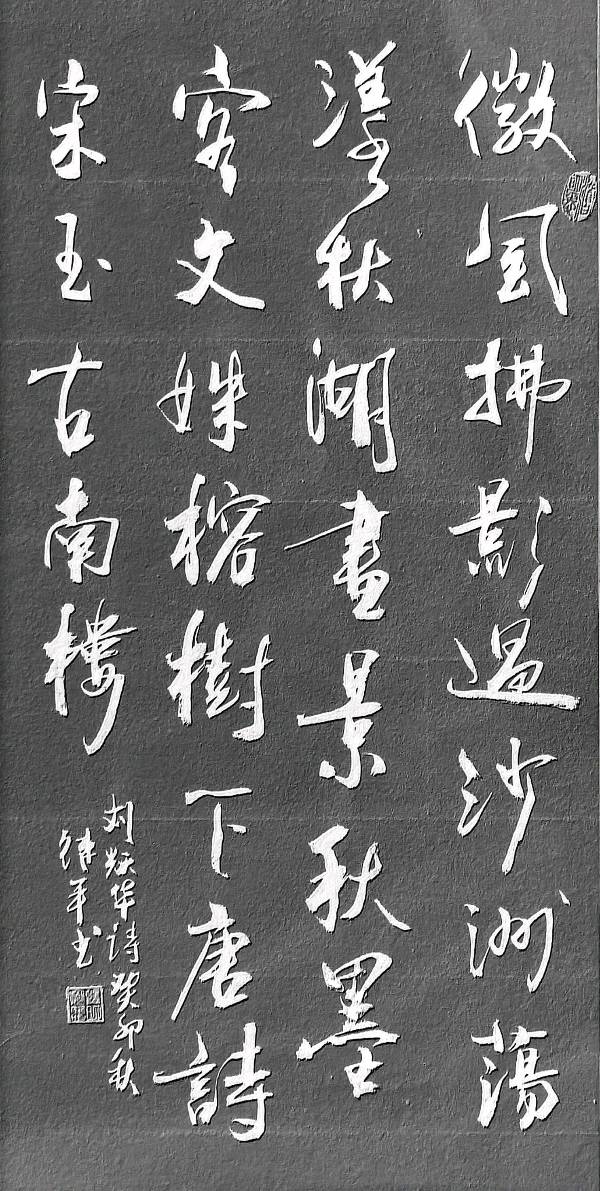 微風拂影過沙洲蕩
漾秋湖畫景秋墨
客文姝榕樹下唐詩
宋玉古南樓
刘焕华诗癸卯秋
平书